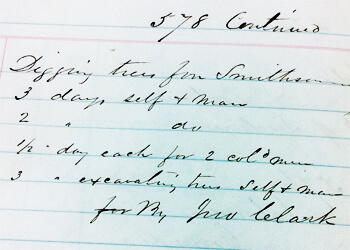 578 Continued
Digging trees for Smithson
3 days self & man
2 " do
1/2 - day each for 2 cold men
3 " excavating trees Self & man
for By Jno Clark